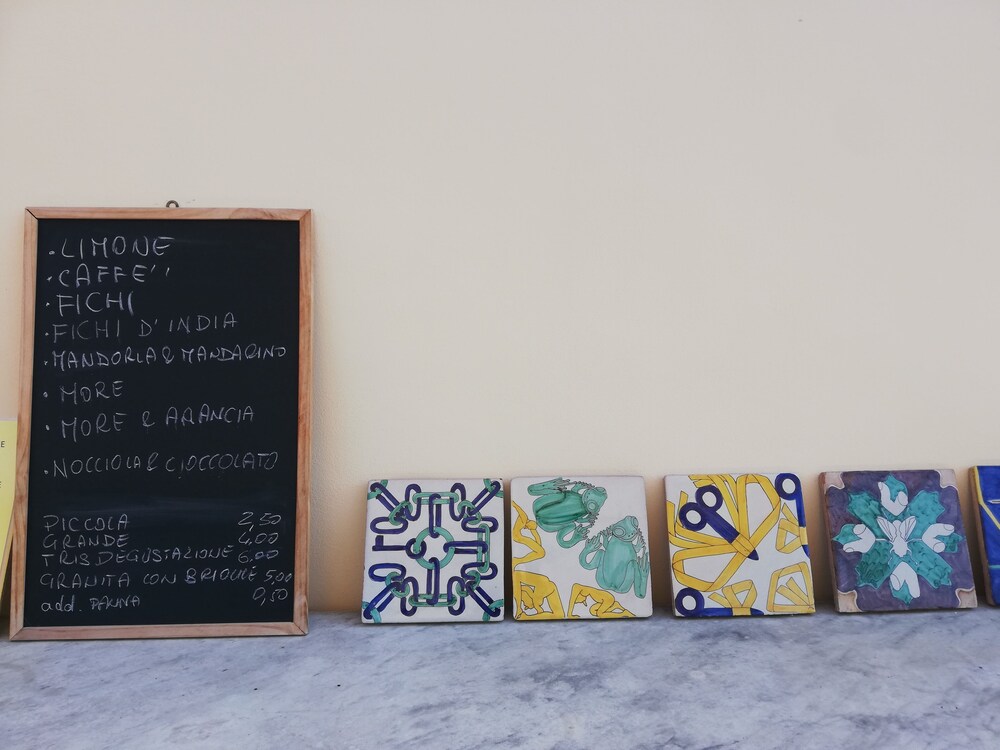 · LIMONE
· CAFFE''
· FICHI
· FICHI D'INDIA
· MANDORLA & MANDARINO
· MORE
· MORE & ARANCIA
· NOCCIOLA & CIOCCOLATO
PICCOLA 2,50
GRANDE 4,00
TRIS DEGUSTAZIONE 6,00
GRANITA CON BRIOCHE 5,00
add. PANNA 0,50